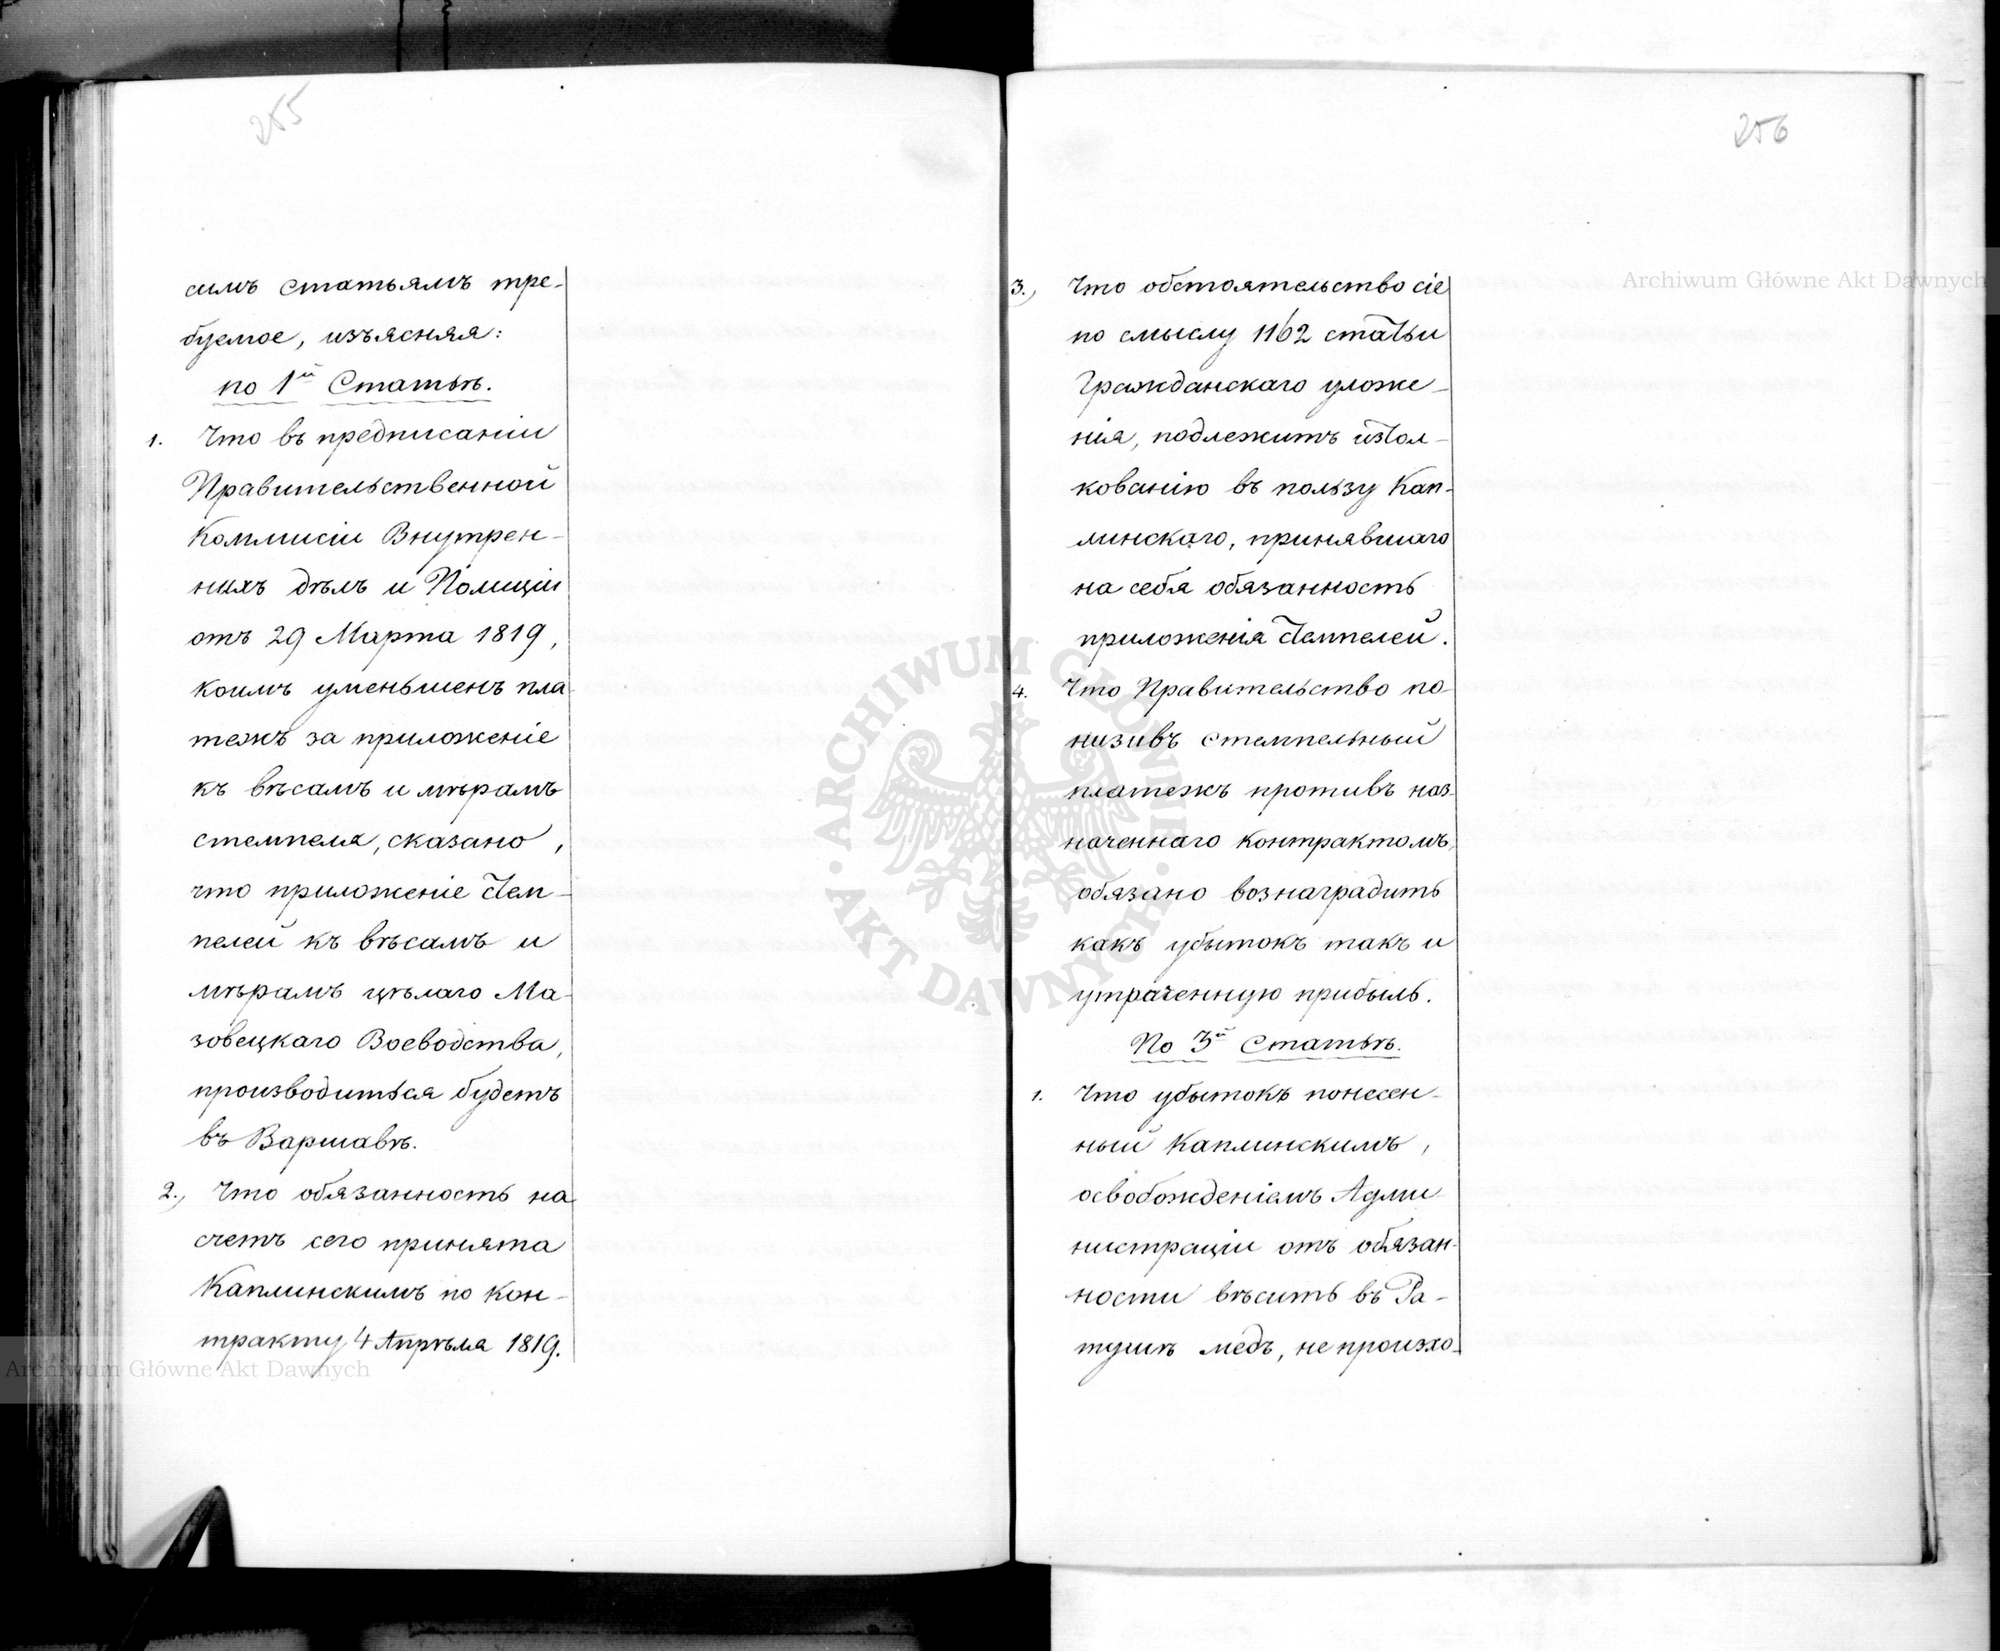 255
симъ статьямъ тре-
буемое, изъясняя:
по 1й Статьѣ.
1. Что въ предписаніи
Правительственной
Коммисіи Внутрен-
нихъ дѣлъ и Полиціи
отъ 29 Марта 1819,
коимъ уменьшенъ пла-
тежъ за приложеніе
къ вѣсамъ и мѣрамъ
стемпеля, сказано,
что приложеніе стем-
пелей къ вѣсамъ и
мѣрамъ цѣлаго Ма-
зовецкаго Воеводства,
производиться будетъ
въ Варшавѣ.
2., Что обязанность на
счетъ сего принята
Каплинскимъ по кон-
тракту 4 Апрѣля 1819.
256
3., Что обстоятельство сіе
по смыслу 1162 статьи
Гражданскаго уложе-
нія, подлежитъ изтол-
кованію въ пользу Кап-
линскаго, принявшаго
на себя обязанность
приложенія стемпелей.
4. Что Правительство по-
низивъ стемпельный
платежъ противъ наз-
наченнаго контрактомъ,
обязано вознаградить
какъ убытокъ такъ и
утраченную прибыль.
По 3й Статьѣ.
1. Что убытокъ понесен-
ный Каплинскимъ,
освобожденіемъ Адми-
нистраціи отъ обязан-
ности вѣсить въ Ра-
тушѣ медъ, не произхо-
Archiwum Główne Akt Dawnych
ARCHIWUM GŁÓWNE · AKT DAWNYCH ·
Archiwum Główne Akt Dawnych